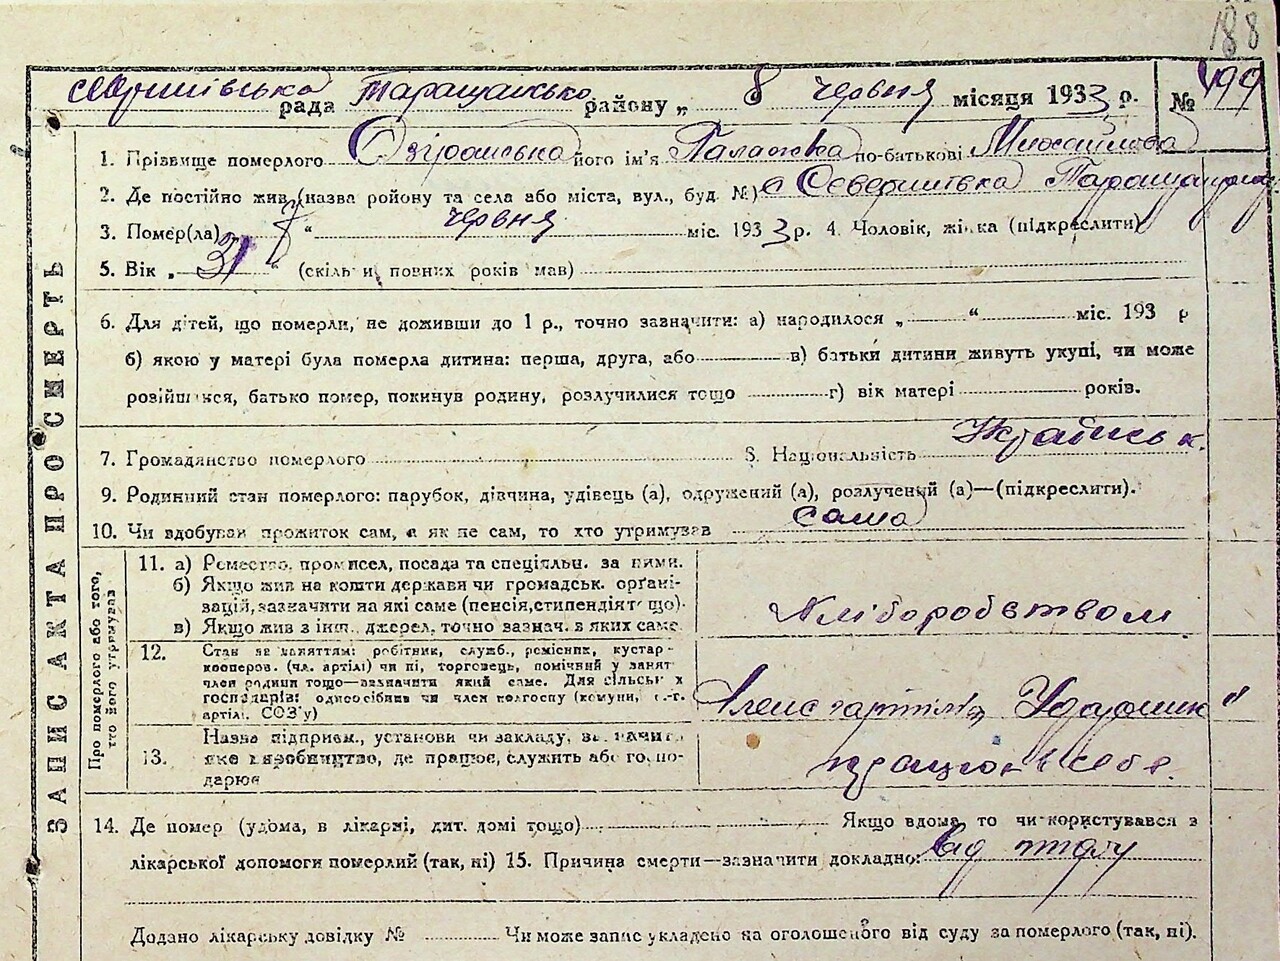 188
рада Таращансько району „ 8 червня місяця 1933 р. № 199
1. Прізвище померлого його ім'я Палажка по-батькові Михайлова
2. Де постійно жив (назва району та села або міста, вул., буд. №) с
3. Помер(ла) 8 “ червня міс. 1933 р. 4. Чоловік, жінка (підкреслити)
5. Вік „ 31 “ (скільки повних років мав)
6. Для дітей, що померли, не доживши до 1 р., точно зазначити: а) народилося „ “ міс. 193 р
б) якою у матері була померла дитина: перша, друга, або в) батьки дитини живуть укупі, чи може
розійшлися, батько помер, покинув родину, розлучилися тощо г) вік матері років.
7. Громадянство померлого 8. Національність
9. Родинний стан померлого: парубок, дівчина, удівець (а), одружений (а), розлучений (а)—(підкреслити).
10. Чи здобував прожиток сам, а як не сам, то хто утримував сама
ЗАПИС АКТА ПРО СМЕРТЬ
Про померлого або того, хто його утримував
11. а) Ремество, промисел, посада та спеціяльн. за ними.
б) Якщо жив на кошти держави чи громадськ. орґані-
зацій, зазначити на які саме (пенсія, стипендія тощо).
в) Якщо жив з інш. джерел, точно зазнач. з яких саме.
Хліборобством
12. Стан за заняттям: робітник, служб., ремісник, кустар-
кооперов. (чл. артілі) чи ні, торговець, помічний у занят
член родини тощо—зазначити який саме. Для сільськ х
господарів: одноосібник чи член колгоспу (комуни, с.-г.
артілі, СОЗ'у)
Член артілі Ударник"
13. Назва підприєм., установи чи закладу, зазначит
яке виробництво, де працює, служить або госпо-
дарює
14. Де помер (удома, в лікарні, дит. домі тощо) Якщо вдома, то чи користувався з
лікарської допомоги померлий (так, ні) 15. Причина смерти—зазначити докладно: Від
Додано лікарську довідку № Чи може запис укладено на оголошеного від суду за померлого (так, ні).